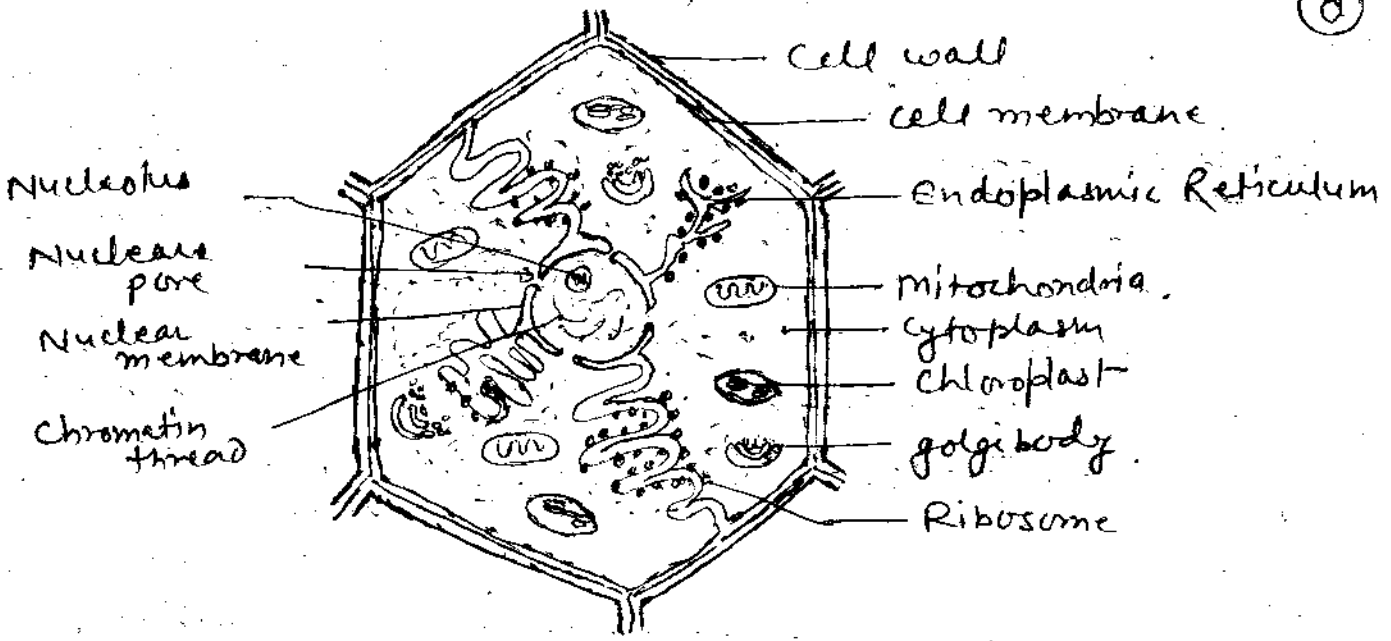 Cell wall
cell membrane.
Endoplasmic Reticulum
Mitochondria.
Cytoplasm
Chloroplast
golgibody.
Ribosome
Nucleolus
Nuclear
pore
Nuclear
membrane
Chromatin
thread